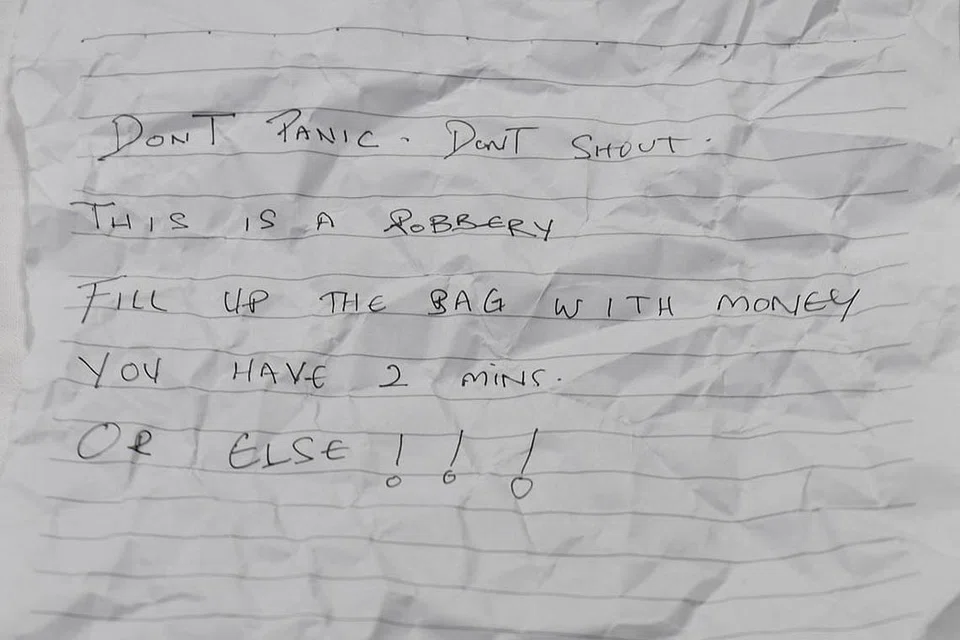 DONT PANIC. DONT SHOUT.
THIS IS A ROBBERY
FILL UP THE BAG WITH MONEY
YOU HAVE 2 MINS.
OR ELSE !!!